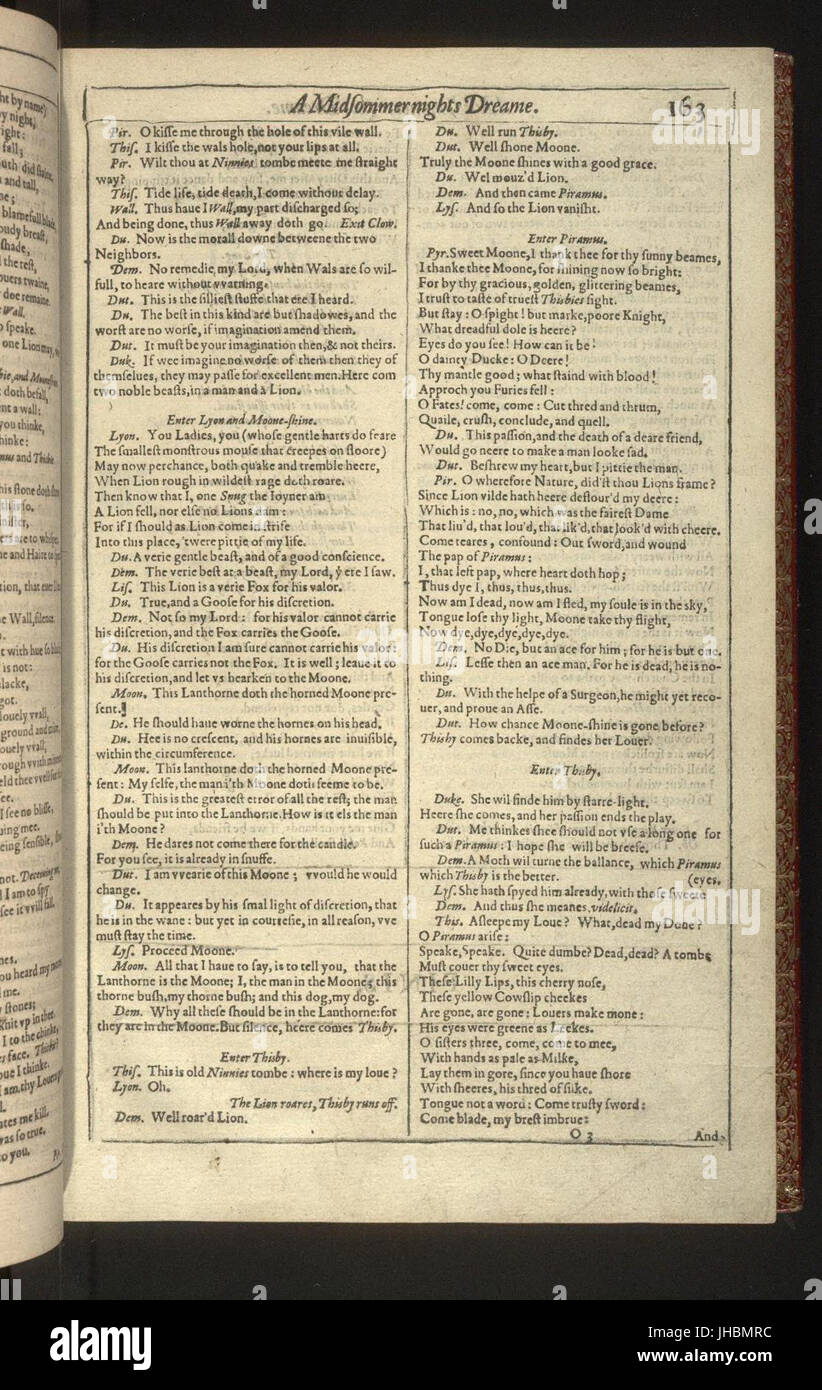 A Midſommer nights Dreame.
163
Pir. O kiſſe me through the hole of this vile wall.
Thiſ. I kiſſe the wals hole, not your lips at all.
Pir. Wilt thou at Ninnies tombe meete me ſtraight
way?
Thiſ. Tide life, tide death, I come without delay.
Wall. Thus haue I Wall, my part diſcharged ſo;
And being done, thus Wall away doth go. Exit Clow.
Du. Now is the morall downe betweene the two
Neighbors.
Dem. No remedie my Lord, when Wals are ſo wil-
full, to heare without vvarning.
Dut. This is the ſillieſt ſtuffe that ere I heard.
Du. The beſt in this kind are but ſhadowes, and the
worſt are no worſe, if imagination amend them.
Dut. It muſt be your imagination then, & not theirs.
Duk. If wee imagine no worſe of them then they of
themſelues, they may paſſe for excellent men. Here com
two noble beaſts, in a man and a Lion.
Enter Lyon and Moone-ſhine.
Lyon. You Ladies, you (whoſe gentle harts do feare
The ſmalleſt monſtrous mouſe that creepes on floore)
May now perchance, both quake and tremble heere,
When Lion rough in wildeſt rage doth roare.
Then know that I, one Snug the Ioyner am
A Lion fell, nor elſe no Lions dam:
For if I ſhould as Lion come in ſtrife
Into this place, 'twere pittie of my life.
Du. A verie gentle beaſt, and of a good conſcience.
Dem. The verie beſt at a beaſt, my Lord, ẏ ere I ſaw.
Liſ. This Lion is a verie Fox for his valor.
Du. True, and a Gooſe for his diſcretion.
Dem. Not ſo my Lord: for his valor cannot carrie
his diſcretion, and the Fox carries the Gooſe.
Du. His diſcretion I am ſure cannot carrie his valor:
for the Gooſe carries not the Fox. It is well; leaue it to
his diſcretion, and let vs hearken to the Moone.
Moon. This Lanthorne doth the horned Moone pre-
ſent.
De. He ſhould haue worne the hornes on his head.
Du. Hee is no creſcent, and his hornes are inuiſible,
within the circumference.
Moon. This lanthorne doth the horned Moone pre-
ſent: My ſelfe, the man i'th Moone doth ſeeme to be.
Du. This is the greateſt error of all the reſt; the man
ſhould be put into the Lanthorne. How is it els the man
i'th Moone?
Dem. He dares not come there for the candle.
For you ſee, it is already in ſnuffe.
Dut. I am vvearie of this Moone; vvould he would
change.
Du. It appeares by his ſmal light of diſcretion, that
he is in the wane: but yet in courteſie, in all reaſon, vve
muſt ſtay the time.
Lyſ. Proceed Moone.
Moon. All that I haue to ſay, is to tell you, that the
Lanthorne is the Moone; I, the man in the Moone; this
thorne buſh, my thorne buſh; and this dog, my dog.
Dem. Why all theſe ſhould be in the Lanthorne: for
they are in the Moone. But ſilence, heere comes Thisby.
Enter Thisby.
Thiſ. This is old Ninnies tombe: where is my loue?
Lyon. Oh.
The Lion roares, Thisby runs off.
Dem. Well roar'd Lion.
Du. Well run Thisby.
Dut. Well ſhone Moone.
Truly the Moone ſhines with a good grace.
Du. Wel mouz'd Lion.
Dem. And then came Piramus.
Lyſ. And ſo the Lion vaniſht.
Enter Piramus.
Pyr. Sweet Moone, I thank thee for thy ſunny beames,
I thanke thee Moone, for ſhining now ſo bright:
For by thy gracious, golden, glittering beames,
I truſt to taſte of trueſt Thisbies ſight.
But ſtay: O ſpight! but marke, poore Knight,
What dreadful dole is heere?
Eyes do you ſee! How can it be!
O dainty Ducke: O Deere!
Thy mantle good; what ſtaind with blood!
Approch you Furies fell:
O Fates! come, come: Cut thred and thrum,
Quaile, cruſh, conclude, and quell.
Du. This paſſion, and the death of a deare friend,
Would go neere to make a man looke ſad.
Dut. Beſhrew my heart, but I pittie the man.
Pir. O wherefore Nature, did'ſt thou Lions frame?
Since Lion vilde hath heere deflour'd my deere:
Which is: no, no, which was the faireſt Dame
That liu'd, that lou'd, that lik'd, that look'd with cheere.
Come teares, confound: Out ſword, and wound
The pap of Piramus:
I, that left pap, where heart doth hop;
Thus dye I, thus, thus, thus.
Now am I dead, now am I fled, my ſoule is in the sky,
Tongue loſe thy light, Moone take thy flight,
Now dye, dye, dye, dye, dye.
Dem. No Die, but an ace for him; for he is but one.
Liſ. Leſſe then an ace man. For he is dead, he is no-
thing.
Du. With the helpe of a Surgeon, he might yet reco-
uer, and proue an Aſſe.
Dut. How chance Moone-ſhine is gone before?
Thisby comes backe, and findes her Louer.
Enter Thisby.
Duke. She wil finde him by ſtarre-light.
Heere ſhe comes, and her paſſion ends the play.
Dut. Me thinkes ſhee ſhould not vſe a long one for
ſuch a Piramus: I hope ſhe will be breefe.
Dem. A Moth wil turne the ballance, which Piramus
which Thisby is the better. (eyes.
Lyſ. She hath ſpyed him already, with thoſe ſweete
Dem. And thus ſhe meanes, videlicit.
This. Aſleepe my Loue? What, dead my Doue?
O Piramus ariſe:
Speake, Speake. Quite dumbe? Dead, dead? A tombe
Muſt couer thy ſweet eyes.
Theſe Lilly Lips, this cherry noſe,
Theſe yellow Cowſlip cheekes
Are gone, are gone: Louers make mone:
His eyes were greene as Leekes.
O ſiſters three, come, come to mee,
With hands as pale as Milke,
Lay them in gore, ſince you haue ſhore
With ſheeres, his thred of ſilke.
Tongue not a word: Come truſty ſword:
Come blade, my breſt imbrue:
O 3
And
alamy
alamy stock photo
JHBMRC
www.alamy.com